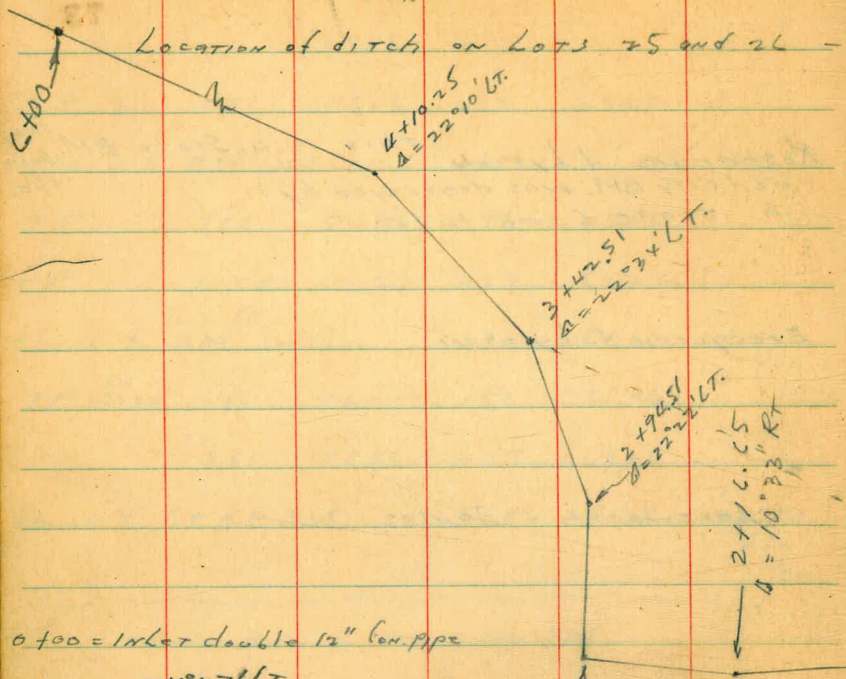 Location of ditch on Lots 25 and 26 -
6+00
4+10.25
Δ = 22°10' LT.
3+42.51
Δ = 22°34' LT.
2+94.51
Δ = 22°22' LT.
2+16.65
Δ = 10°33" Rt
0+00 = Inlet double 12" Con. pipe